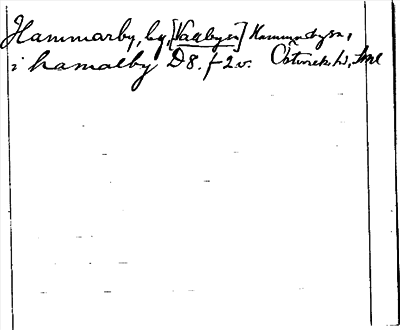 Hammarby, by, [Vallbyen] Hammarbysn,
i hamalby D8. f 2 v. Österrek. hd, Sml